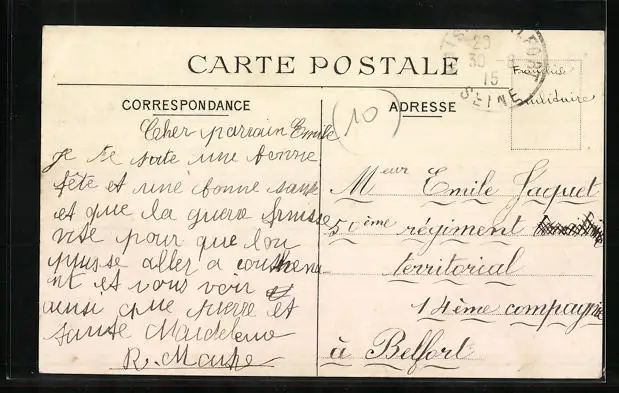 CARTE POSTALE
CORRESPONDANCE
ADRESSE
20
30 - 8
15
SEINE
Franchise
militaire
(10)
Cher parrain Emile
je te soite une bonne
fête et une bonne sante
et que la guerre finisse
vite pour que lon
puisse aller a
et vous voir et
ainsi que pierre et
tante Maideleine
R.
Meur Emile Jaquet
50ème régiment
territorial
14ème compagnie
à Belfort